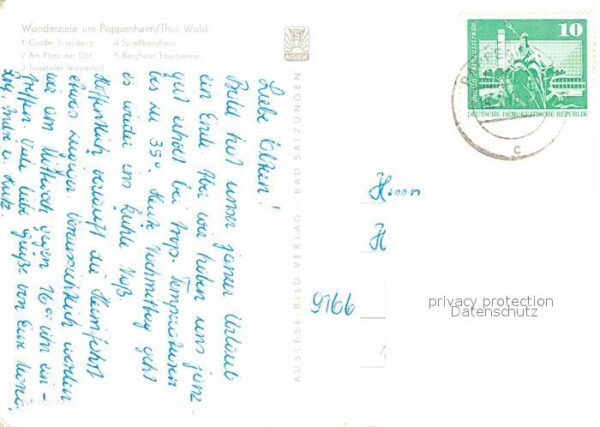 Wanderziele um Pappenheim/Thür. Wald
1 Großer Inselsberg 4 Spießberghaus
2 Am Platz der DSF 5 Berghotel Ebertswiese
3 Trusetaler Wasserfall
Liebe Eltern!
Bald hat unser ganzer Urlaub
ein Ende. Aber wir haben uns ganz
gut erholt bei Temperaturen
bis zu 35°. Heute Nachmittag geht
es wieder ins kühle Naß.
Hoffentlich verläuft die Heimfahrt
etwas zügiger. Voraussichtlich werden
wir am Mittwoch gegen 16°° Uhr ein-
treffen. Viele liebe Grüße von Eure
u. Lutz.
AUSLESE-BILD-VERLAG BAD SALZUNGEN
10
DEUTSCHE DEMOKRATISCHE REPUBLIK
c
Herrn
H
9166
privacy protection
Datenschutz